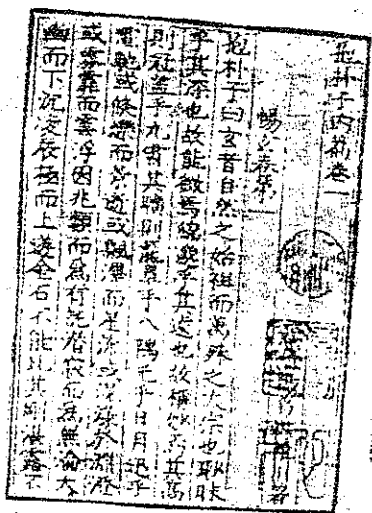 抱朴子内篇卷一
暢玄卷第一
抱朴子曰玄者自然之始祖而萬殊之大宗也眇昧
乎其深也故能微焉綿邈乎其遠也故稱妙焉其高
則冠蓋乎九霄其曠則籠罩乎八隅光乎日月迅乎
電馳或倏爍而景逝或飄滭而星流或滉漾於淵澄
或雰霏而雲浮因兆類而為有託潛寂而為無淪大
幽而下沉凌辰極而上遊金石不能比其剛湛露不